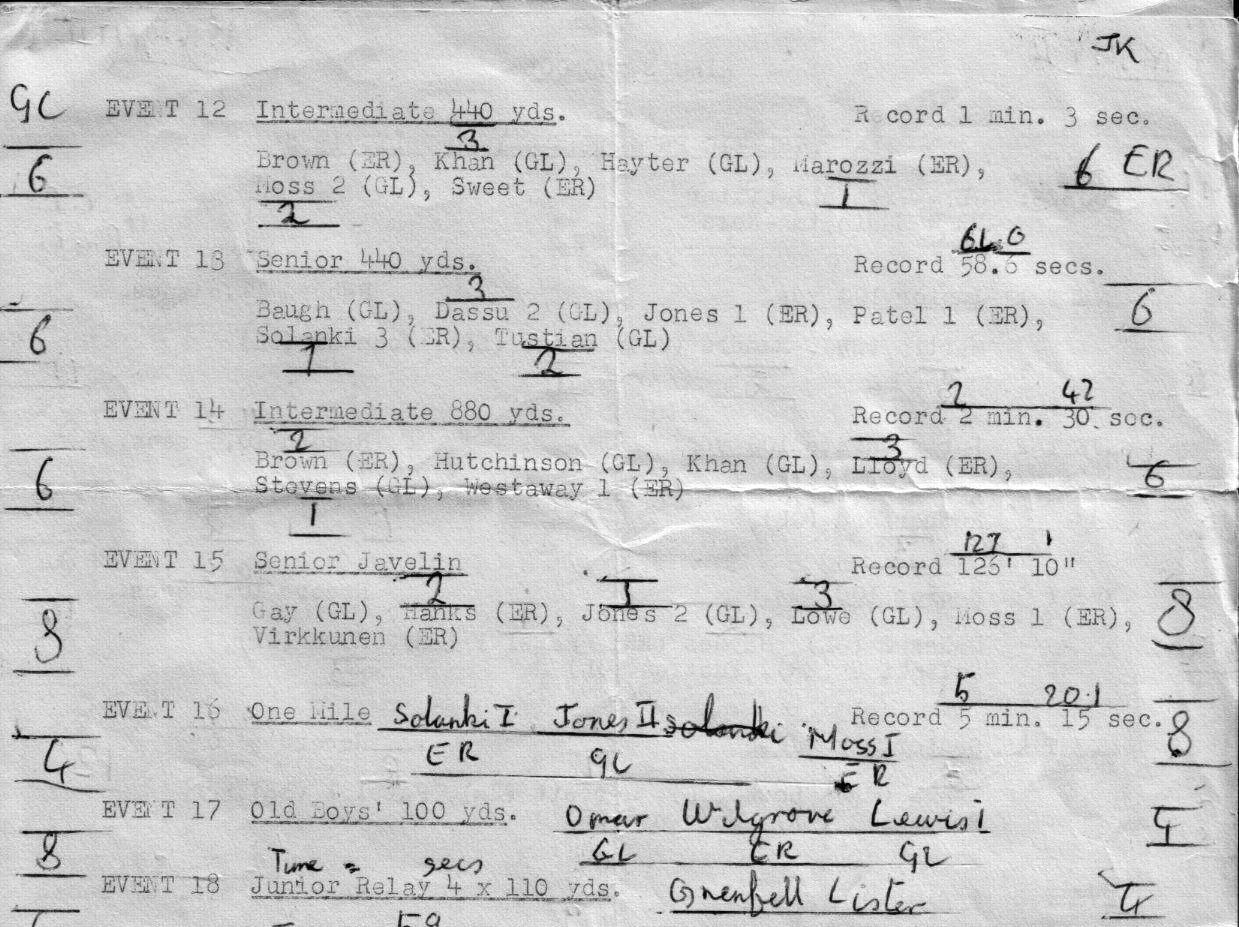 JK
GC EVENT 12 Intermediate 440 yds. Record 1 min. 3 sec.
3
Brown (ER), Khan (GL), Hayter (GL), Marozzi (ER), 6 ER
6 Moss 2 (GL), Sweet (ER) 1
2
61.0
EVENT 13 Senior 440 yds. Record 58.6 secs.
3
Baugh (GL), Dassu 2 (GL), Jones 1 (ER), Patel 1 (ER), 6
6 Solanki 3 (ER), Tustian (GL)
1 2
2 42
EVENT 14 Intermediate 880 yds. Record 2 min. 30. sec.
2 3
Brown (ER), Hutchinson (GL), Khan (GL), Lloyd (ER),
6 Stevens (GL), Westaway 1 (ER) 6
1
127 1
EVENT 15 Senior Javelin Record 126' 10"
2 1 3
Gay (GL), Hanks (ER), Jones 2 (GL), Lowe (GL), Moss 1 (ER), 8
8 Virkkunen (ER)
5 20.1
EVENT 16 One Mile Solanki I Jones II Solanki Moss I Record 5 min. 15 sec. 8
4 ER GL ER
EVENT 17 Old Boys' 100 yds. Omar Wilgrove Lewis I 4
8 Time = secs GL ER GL
EVENT 18 Junior Relay 4 x 110 yds. Grenfell Lister 4
59